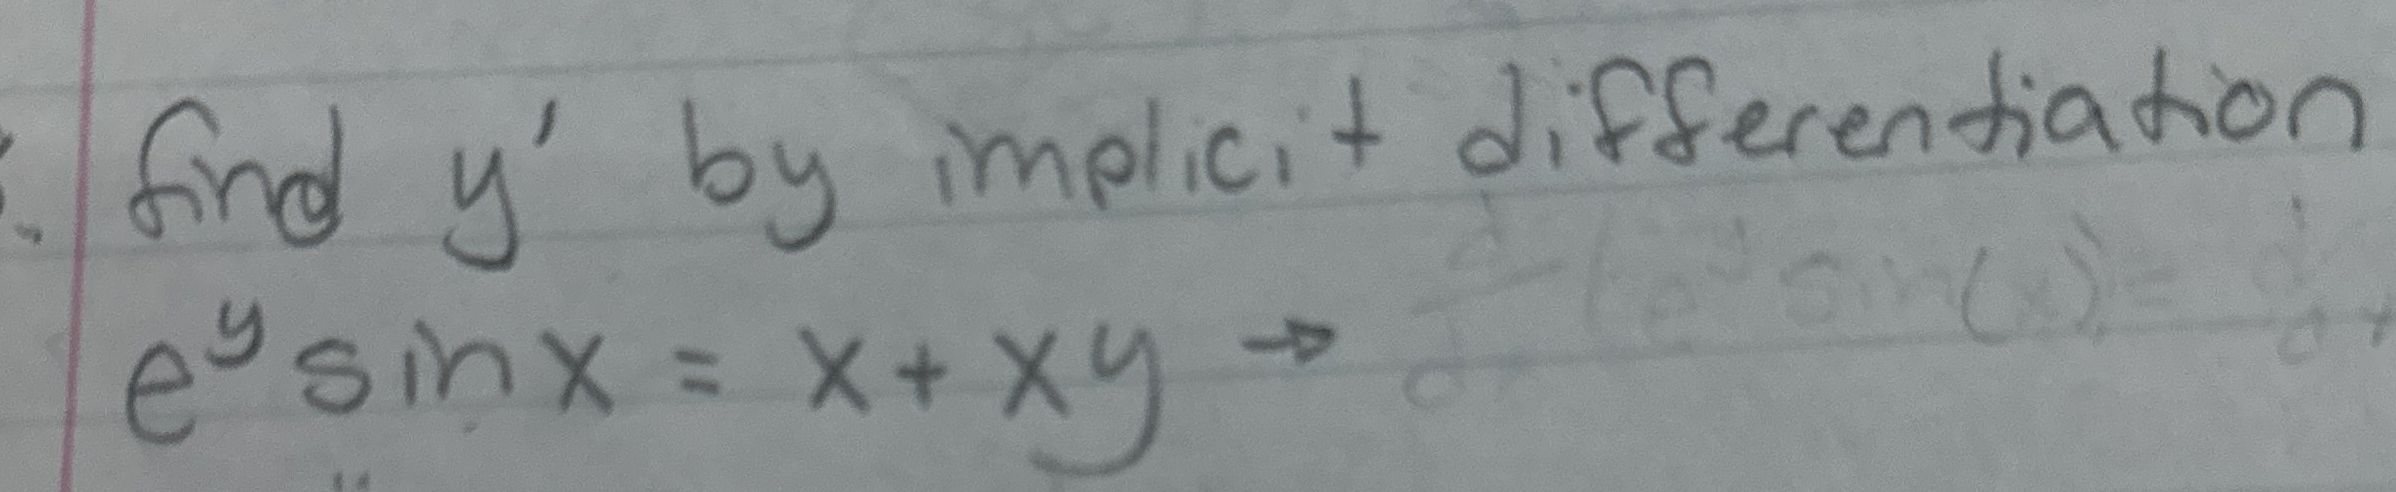 find y' by implicit differentiation
e^y sin x = x + xy → d/d (e^y sin(x)) = d/d